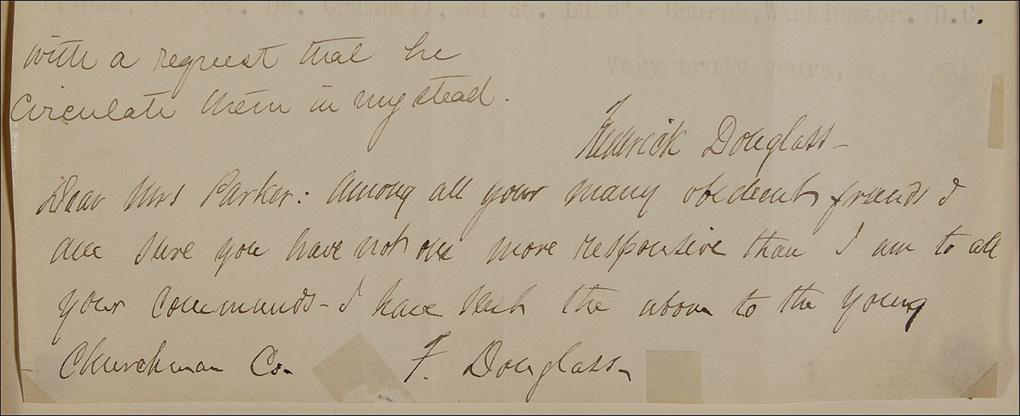 lished, to Rev. Dr. Crummell, of St. Luke's Church, Washington. D.C.
with a request that he
Very truly yours,
Circulate them in my stead.
Frederick Douglass—
Dear Mrs Parker: Among all your many obedient friends I
am sure you have not one more responsive than I am to all
your commands—I have sent the above to the young
Churchman Co. F. Douglass—